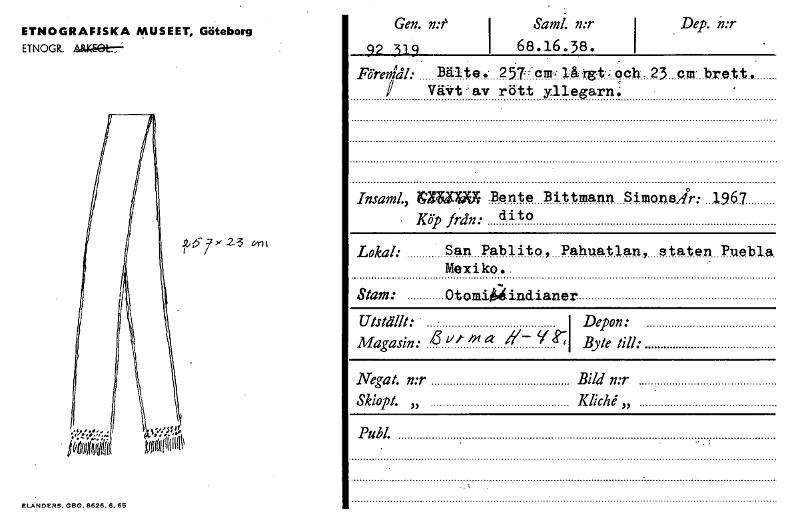 ETNOGRAFISKA MUSEET, Göteborg
ETNOGR. ARKEOL.
257 × 23 cm
ELANDERS. GBG. 8626. 6. 65
Gen. n:r Saml. n:r Dep. n:r
92 319 68.16.38.
Föremål: Bälte. 257 cm långt och 23 cm brett.
Vävt av rött yllegarn.
Insaml., Bente Bittmann Simons År: 1967
Köp från: dito
Lokal: San Pablito, Pahuatlan, staten Puebla
Mexiko.
Stam: Otomi-indianer
Utställt: Depon:
Magasin: Burma H-48. Byte till:
Negat. n:r Bild n:r
Skiopt. „ Kliché „
Publ.